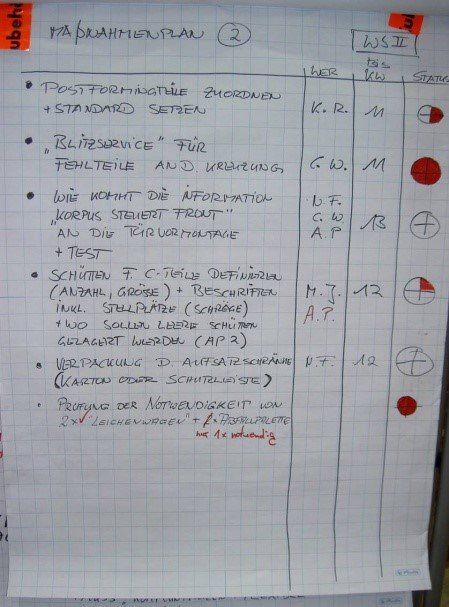 ubehö
MAßNAHMENPLAN 2
WS II
WER
bis KW
STATUS
• POSTFORMINGTEILE ZUORDNEN
+ STANDARD SETZEN K.R. 11
• "BLITZSERVICE" FÜR
FEHLTEILE AN D. KREUZUNG C.W. 11
• WIE KOMMT DIE INFORMATION N.F.
"KORPUS STEUERT FRONT" C.W 13
AN DIE TÜRVORMONTAGE A.P
+ TEST
• SCHÜTTEN F. C-TEILE DEFINIEREN
(ANZAHL, GRÖßE) + BESCHRIFTEN M.J. 12
INKL. STELLPLÄTZE (SCHRÄGE) A.P.
+ WO SOLLEN LEERE SCHÜTTEN
GELAGERT WERDEN (AP2)
• VERPACKUNG D. AUFSATZSCHRÄNKE N.F. 12
(KARTON ODER SCHUTZLEISTE)
• PRÜFUNG DER NOTWENDIGKEIT VON
2x "LEICHENWAGEN" + 2x ABFALLPALETTE
nur 1x notwendig